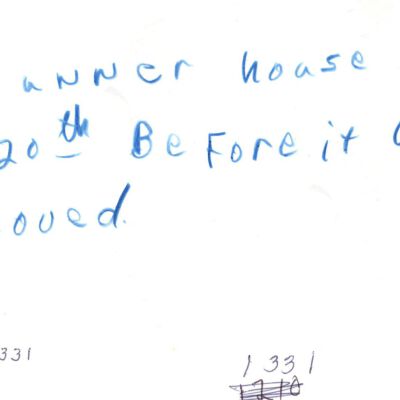 unner house
20th Before it
oved.
331
1331
1210